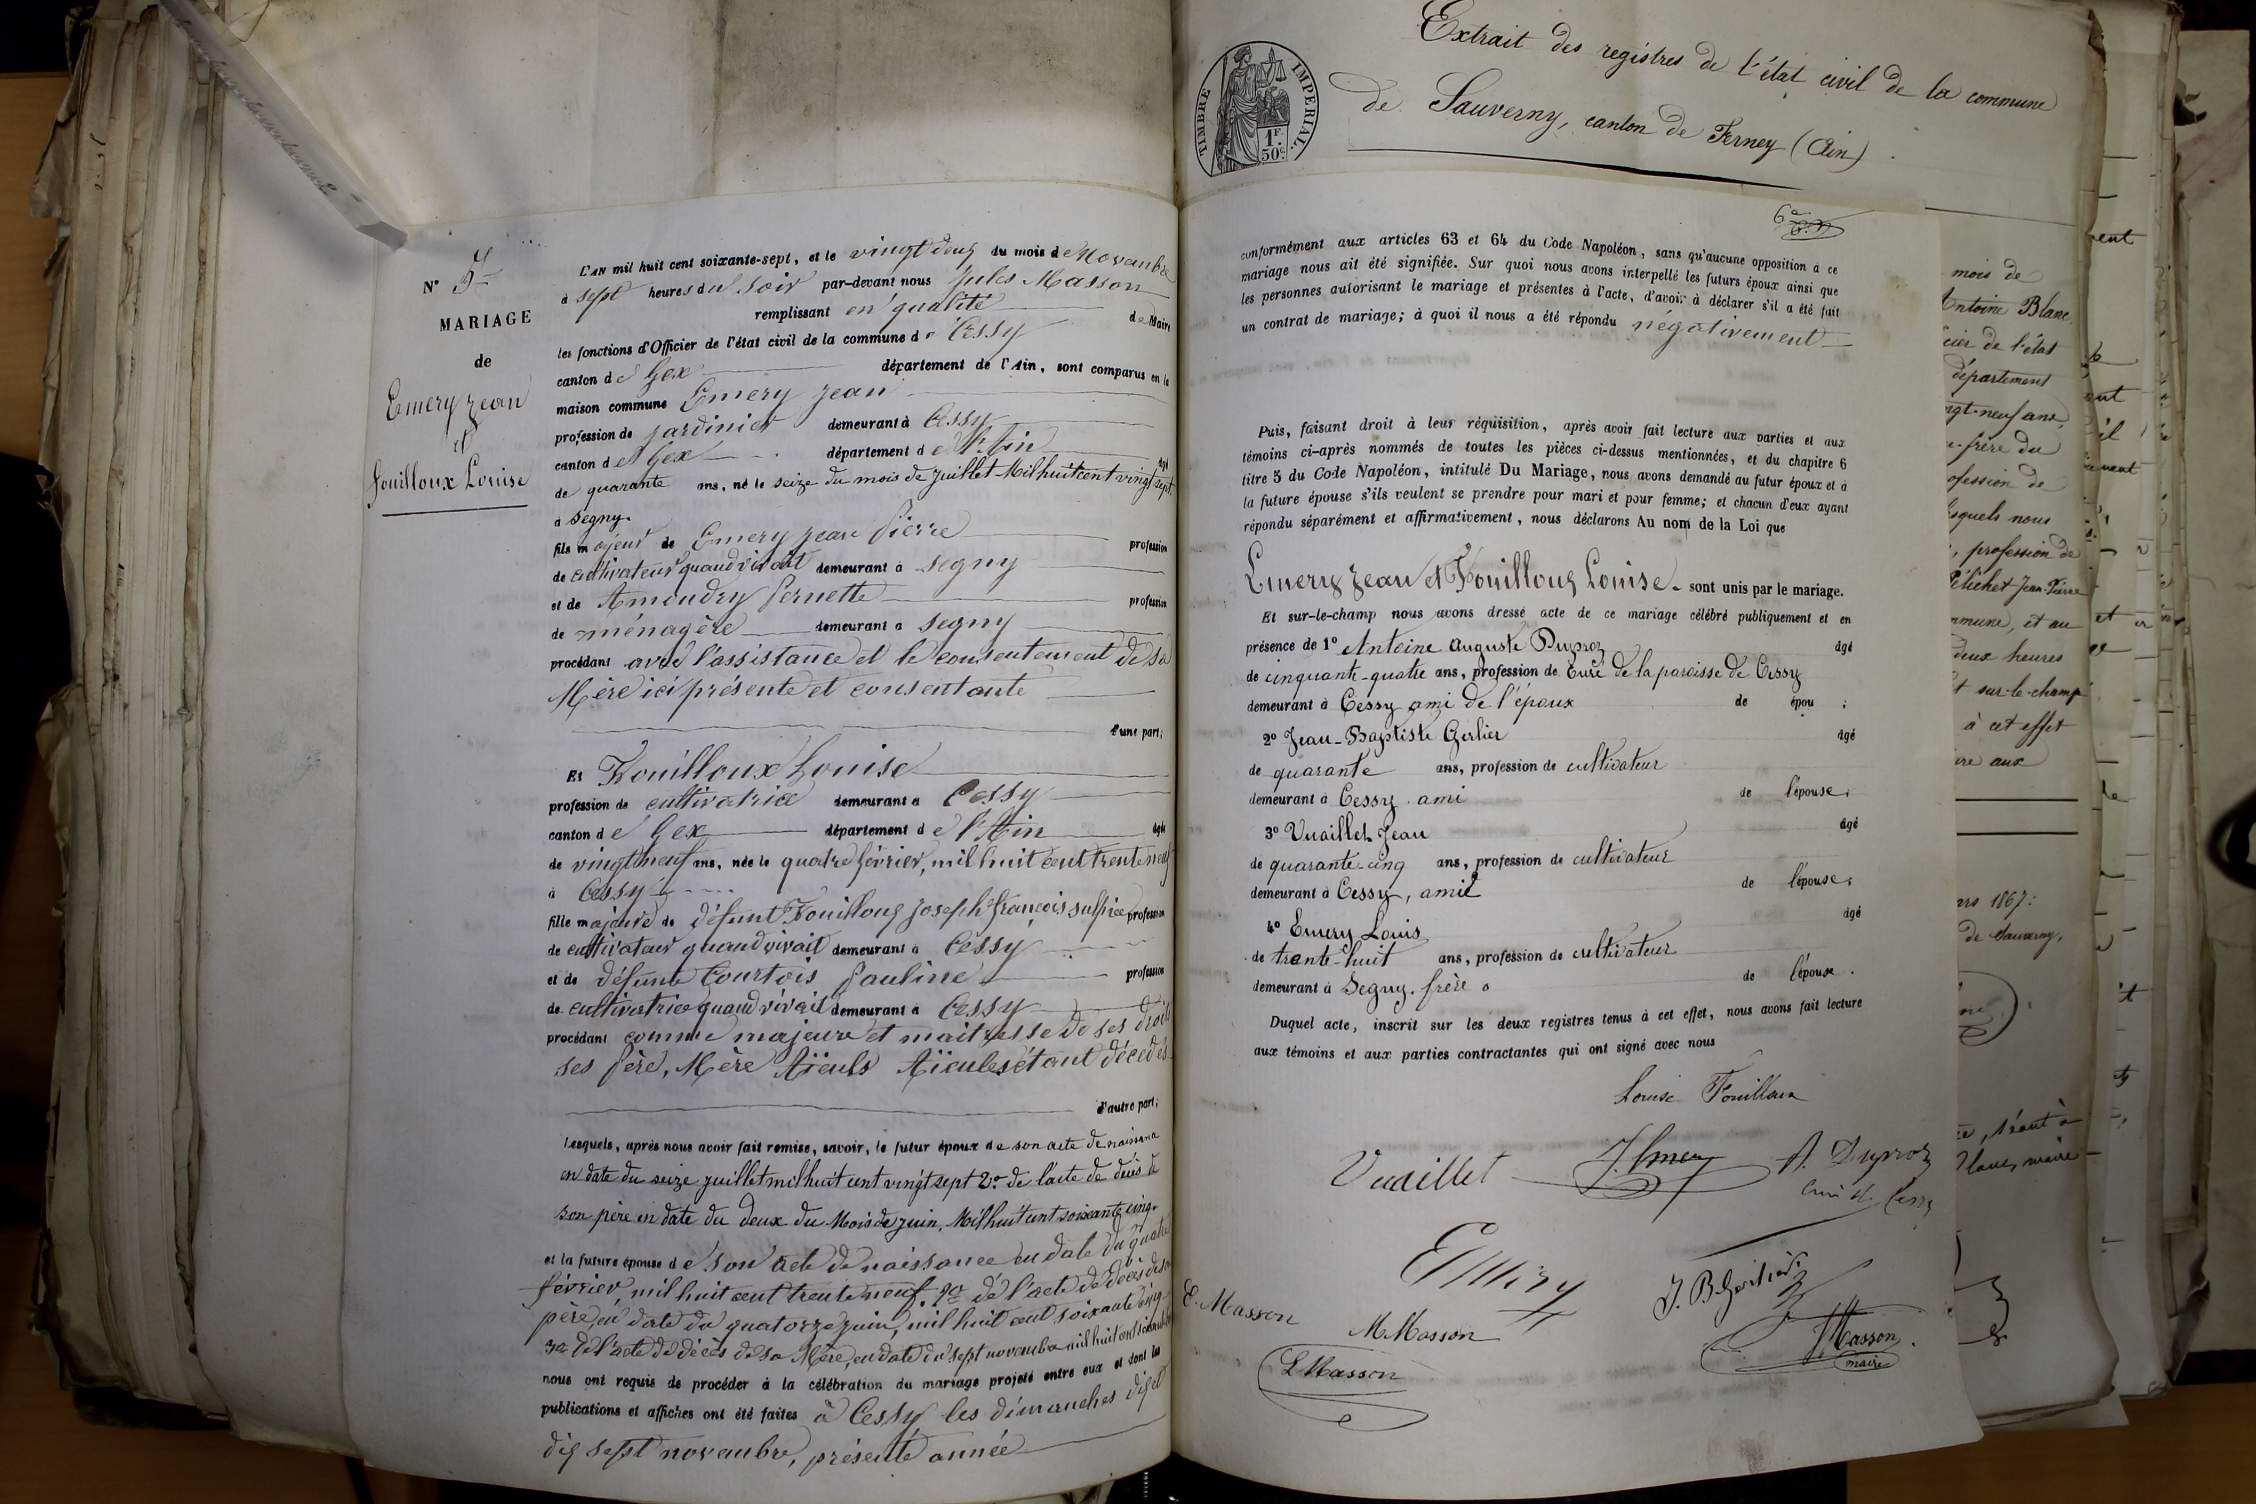 N° 5
MARIAGE
de
Emery Jean
et
Fouilloux Louise
L'AN mil huit cent soixante-sept, et le vingt deux du mois de Novembre
à sept heures du soir par-devant nous Jules Masson
remplissant en qualité de Maire
les fonctions d'Officier de l'état civil de la commune de Cessy
canton de Gex département de l'Ain, sont comparus en la
maison commune Emery Jean
profession de jardinier demeurant à Cessy
canton de Gex département de l'Ain âgé
de quarante ans, né le seize du mois de Juillet Mil huit cent vingt sept
à Segny.
fils majeur de Emery Jean Pierre profession
de cultivateur quand vivait demeurant à Segny
et de Amoudry Pernette profession
de ménagère demeurant à Segny
procédant avec l'assistance et le consentement de sa
Mère ici présente et consentante
d'une part;
Et Fouilloux Louise
profession de cultivatrice demeurant à Cessy
canton de Gex département de l'Ain âgée
de vingt neuf ans, née le quatre février, mil huit cent trente neuf
à Cessy
fille majeure de défunt Fouilloux Joseph François Sulpice profession
de cultivateur quand vivait demeurant à Cessy
et de défunte Courtois Pauline profession
de cultivatrice quand vivait demeurant à Cessy
procédant comme majeure et maitresse de ses droits
ses Père, Mère Aïeuls Aïeules étant décédés
d'autre part;
Lesquels, après nous avoir fait remise, savoir, le futur époux de son acte de naissance
en date du seize juillet mil huit cent vingt sept 2° de l'acte de décès de
son père en date du deux du Mois de Juin, Mil huit cent soixante cinq.
et la future épouse de son acte de naissance en date du quatre
février, mil huit cent trente neuf. 2° de l'acte de décès de son
père, en date du quatorze juin, mil huit cent soixante cinq
3° de l'acte de décès de sa Mère, en date du sept novembre mil huit cent
nous ont requis de procéder à la célébration du mariage projeté entre eux et dont les
publications et affiches ont été faites à Cessy les dimanches dix et
dix sept novembre, présente année
TIMBRE IMPERIAL.
1F.
50c.
Extrait des registres de l'état civil de la commune
de Sauverny, canton de Ferney (Ain).
6e
conformément aux articles 63 et 64 du Code Napoléon, sans qu'aucune opposition à ce
mariage nous ait été signifiée. Sur quoi nous avons interpellé les futurs époux ainsi que
les personnes autorisant le mariage et présentes à l'acte, d'avoir à déclarer s'il a été fait
un contrat de mariage; à quoi il nous a été répondu négativement
Puis, faisant droit à leur réquisition, après avoir fait lecture aux parties et aux
témoins ci-après nommés de toutes les pièces ci-dessus mentionnées, et du chapitre 6
titre 5 du Code Napoléon, intitulé Du Mariage, nous avons demandé au futur époux et à
la future épouse s'ils veulent se prendre pour mari et pour femme; et chacun d'eux ayant
répondu séparément et affirmativement, nous déclarons Au nom de la Loi que
Emery Jean et Fouilloux Louise. sont unis par le mariage.
Et sur-le-champ nous avons dressé acte de ce mariage célébré publiquement et en
présence de 1° Antoine Auguste Duproz âgé
de cinquante-quatre ans, profession de Curé de la paroisse de Cessy
demeurant à Cessy ami de l'époux de épou ;
2° Jean-Baptiste Gerlier âgé
de quarante ans, profession de cultivateur
demeurant à Cessy. ami de l'épouse;
3° Vuaillet Jean âgé
de quarante-cinq ans, profession de cultivateur
demeurant à Cessy, ami de l'épouse;
4° Emery Louis âgé
de trente-huit ans, profession de cultivateur
demeurant à Segny. frère de l'époux.
Duquel acte, inscrit sur les deux registres tenus à cet effet, nous avons fait lecture
aux témoins et aux parties contractantes qui ont signé avec nous
Louise Fouilloux
Vuaillet J. Emery A. Duproz
curé de Cessy
Emery
J. B. Gerlier
E. Masson
M. Masson
J Masson
maire
L Masson
mois de
Antoine Blanc
cier de l'état
département
ngt-neuf ans,
-frère du
ofession de
lesquels nous
, profession de
Pélichet Jean-Pierre
mmune, et au
deux heures
t sur-le-champ
à cet effet
ire aux
ars 1867:
de Sauverny,